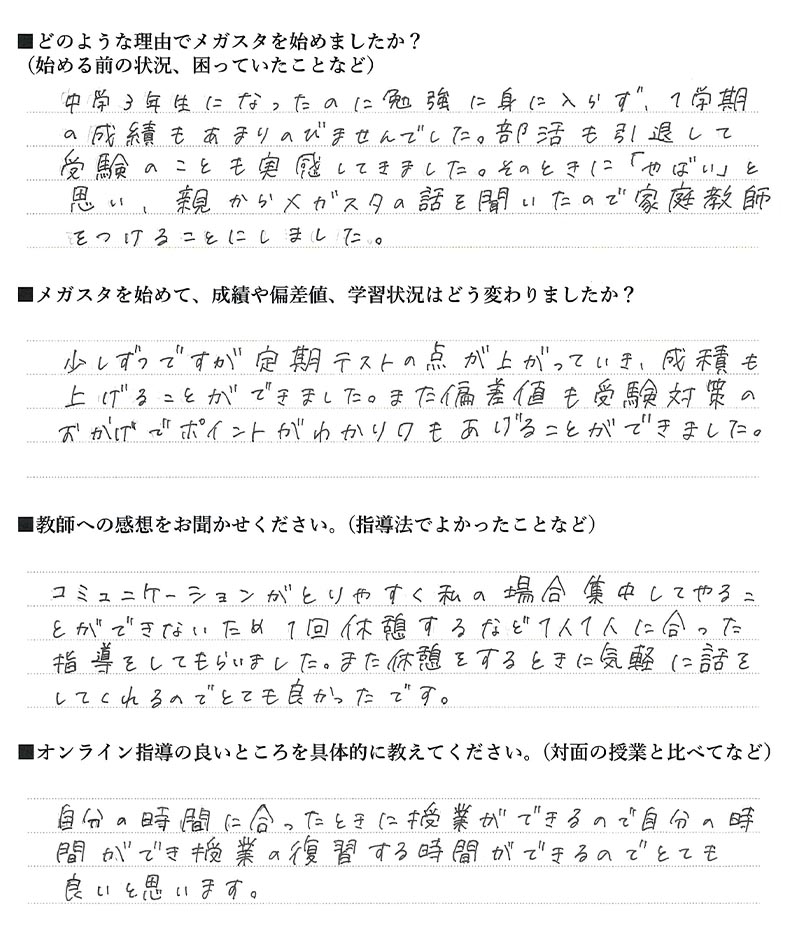 ■どのような理由でメガスタを始めましたか？
（始める前の状況、困っていたことなど）
中学3年生になったのに勉強に身に入らず、1学期
の成績もあまりのびませんでした。部活も引退して
受験のことも実感してきました。そのときに「やばい」と
思い、親からメガスタの話を聞いたので家庭教師
をつけることにしました。
■メガスタを始めて、成績や偏差値、学習状況はどう変わりましたか？
少しずつですが定期テストの点が上がっていき、成積も
上げることができました。また偏差値も受験対策の
おかげでポイントがわかり口もあげることができました。
■教師への感想をお聞かせください。（指導法でよかったことなど）
コミュニケーションがとりやすく私の場合集中してやるこ
とができないため1回休憩するなど1人1人に合った
指導をしてもらいました。また休憩をするときに気軽に話を
してくれるのでとても良かったです。
■オンライン指導の良いところを具体的に教えてください。（対面の授業と比べてなど）
自分の時間に合ったときに授業ができるので自分の時
間ができ授業の復習する時間ができるのでとても
良いと思います。